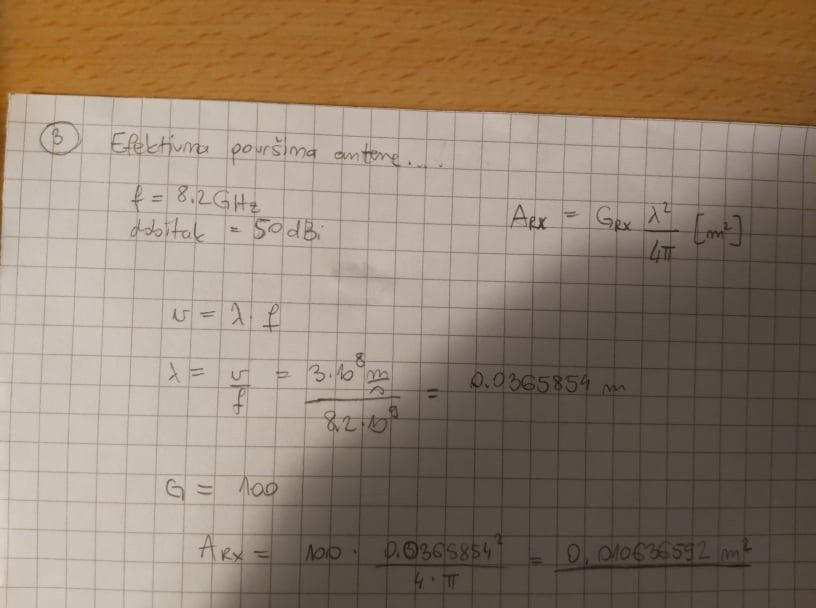 3 Efektivna površina antene....
f = 8.2 GHz
dobitak = 50 dBi
A_RX = G_RX λ²/4π [m²]
v = λ · f
λ = v/f = 3·10⁸ m/s / 8.2·10⁹ = 0.0365854 m
G = 100
A_RX = 100 · 0.0365854²/4·π = 0.010636592 m²